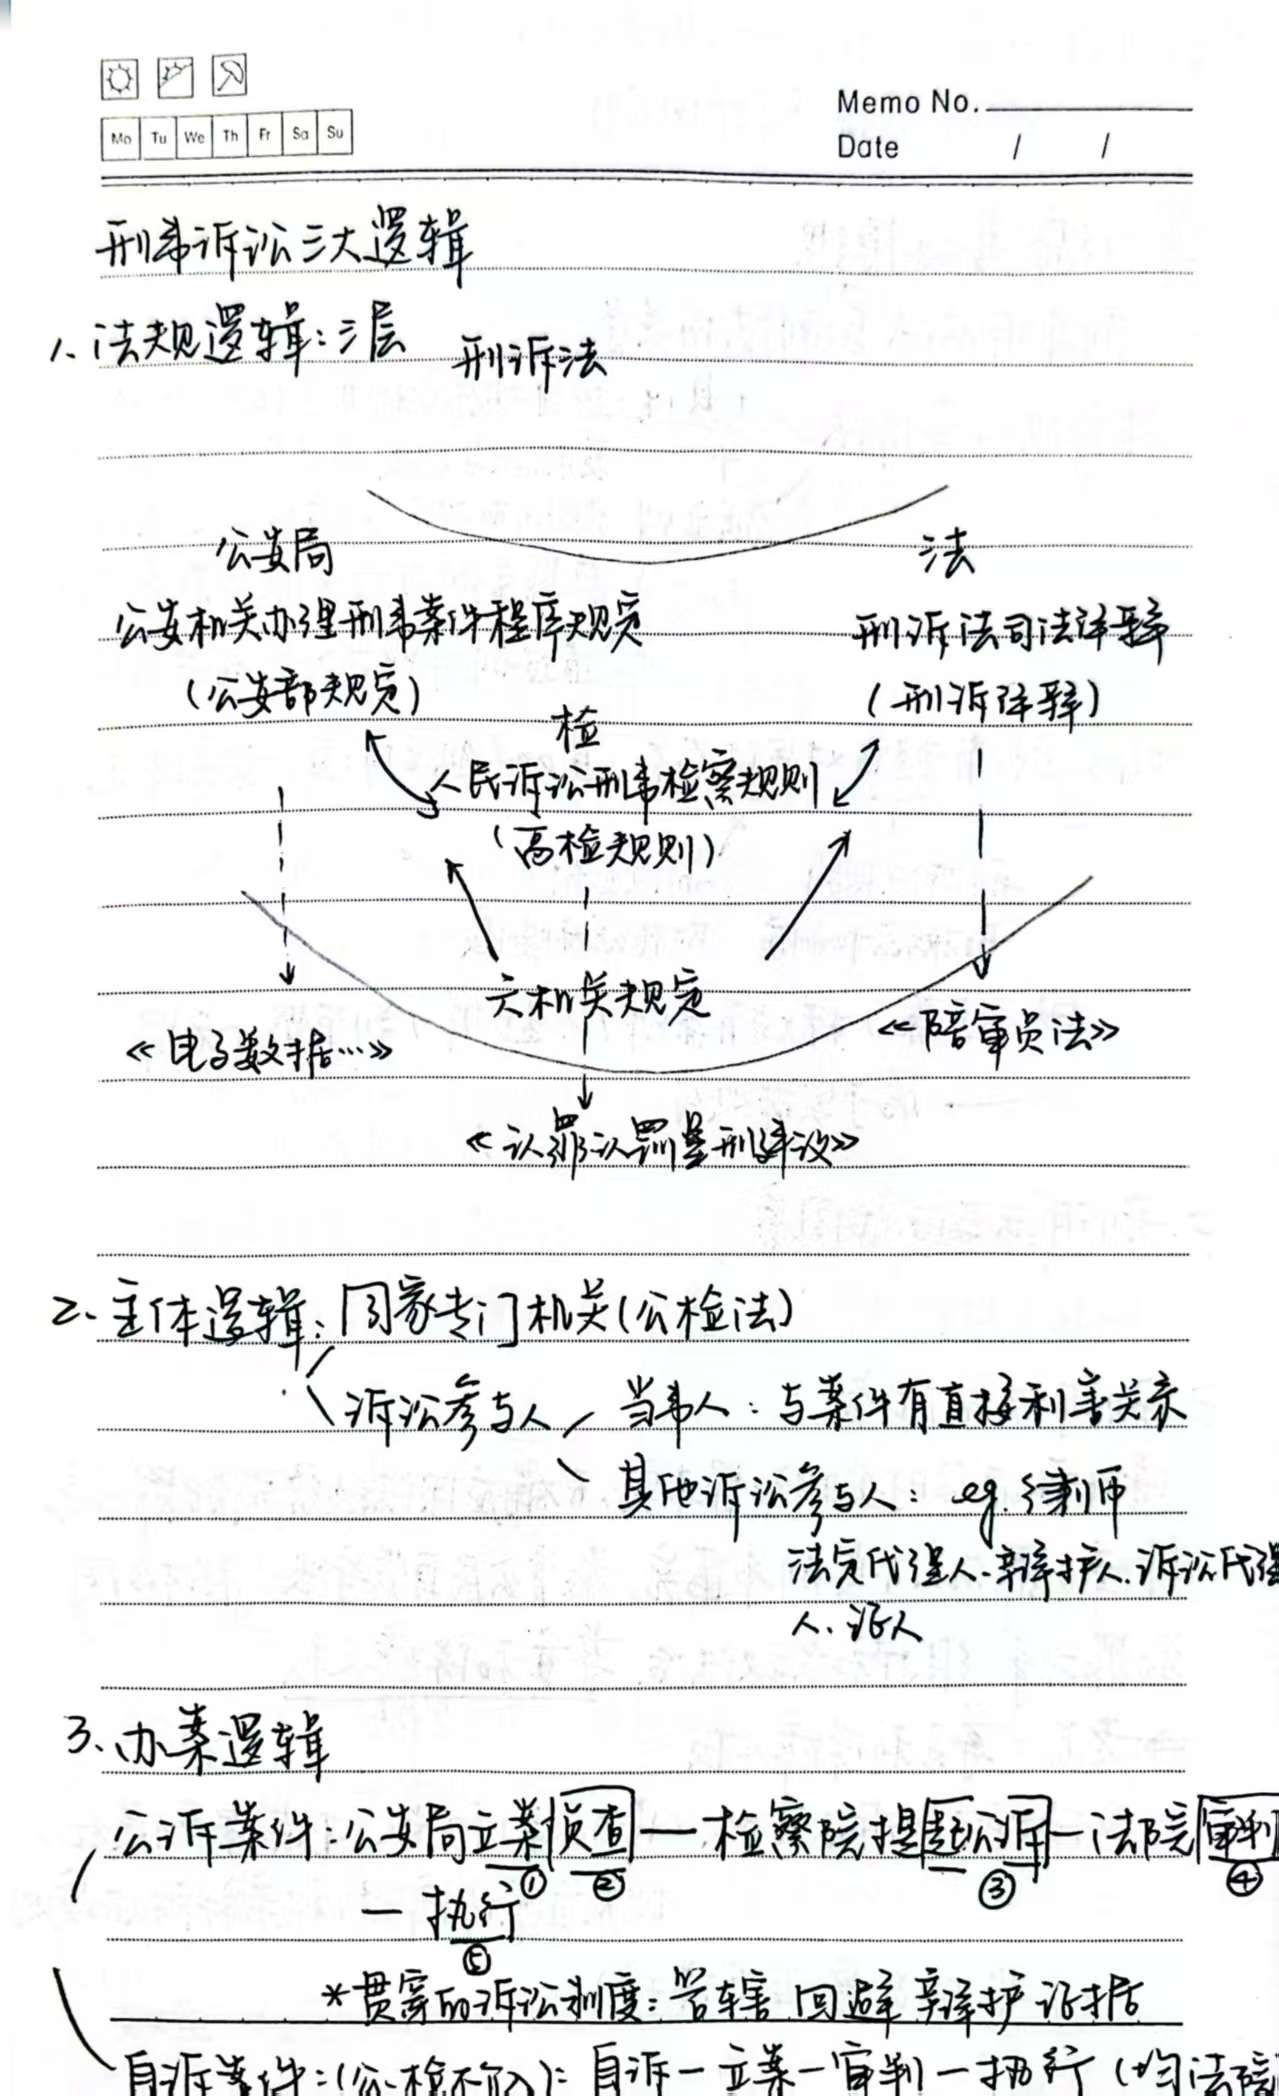 Mo Tu We Th Fr Sa Su
Memo No.
Date / /
刑事诉讼三大逻辑
1. 法规逻辑：三层 刑诉法
公安局 法
公安机关办理刑事案件程序规定 刑诉法司法详释
（公安部规定） （刑诉详释）
检
人民诉讼刑事检察规则
（高检规则）
六机关规定
《电子数据…》 《陪审员法》
《认罪认罚量刑建议》
2. 主体逻辑：国家专门机关（公检法）
诉讼参与人 当事人：与案件有直接利害关系
其他诉讼参与人：eg. 律师
法定代理人.辩护人.诉讼代理
人.证人
3. 办案逻辑
公诉案件：公安局立案侦查—检察院提起公诉—法院审判
① ② ③ ④
— 执行
⑤
*贯穿的诉讼制度：管辖 回避 辩护 证据
自诉案件：（公.检不介入）：自诉—立案—审判—执行（均法院